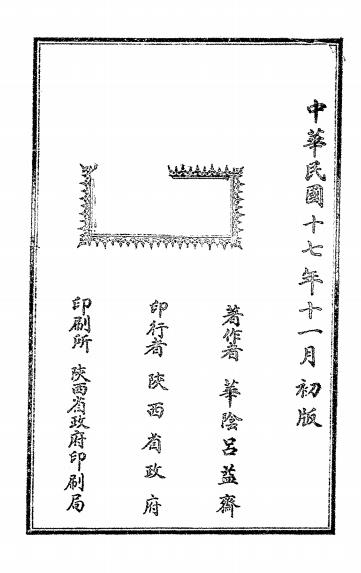 中華民國十七年十一月初版
著作者　華陰呂益齋
印行者　陝西省政府
印刷所　陝西省政府印刷局